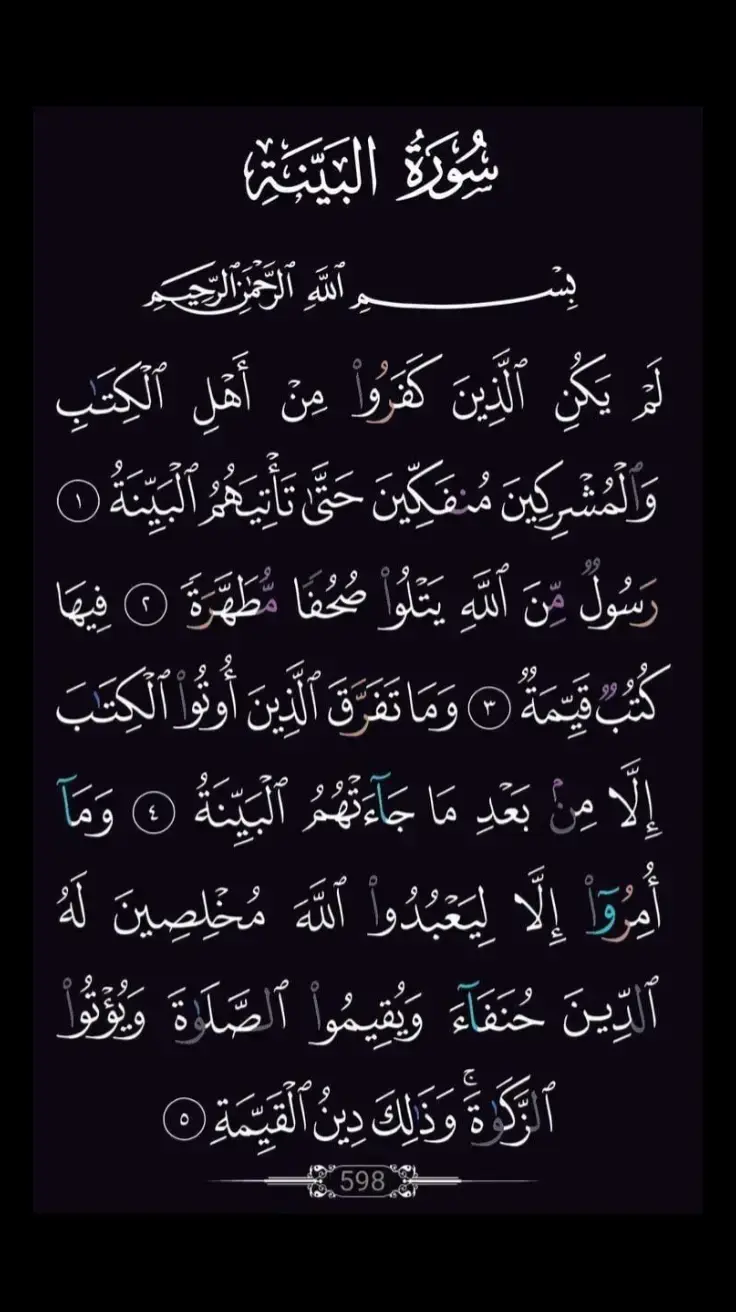 سُورَةُ البَيِّنَةِ
بِسْمِ ٱللَّهِ ٱلرَّحْمَٰنِ ٱلرَّحِيمِ
لَمْ يَكُنِ ٱلَّذِينَ كَفَرُوا۟ مِنْ أَهْلِ ٱلْكِتَٰبِ
وَٱلْمُشْرِكِينَ مُنفَكِّينَ حَتَّىٰ تَأْتِيَهُمُ ٱلْبَيِّنَةُ ١
رَسُولٌ مِّنَ ٱللَّهِ يَتْلُوا۟ صُحُفًا مُّطَهَّرَةً ٢ فِيهَا
كُتُبٌ قَيِّمَةٌ ٣ وَمَا تَفَرَّقَ ٱلَّذِينَ أُوتُوا۟ ٱلْكِتَٰبَ
إِلَّا مِنۢ بَعْدِ مَا جَآءَتْهُمُ ٱلْبَيِّنَةُ ٤ وَمَآ
أُمِرُوٓا۟ إِلَّا لِيَعْبُدُوا۟ ٱللَّهَ مُخْلِصِينَ لَهُ
ٱلدِّينَ حُنَفَآءَ وَيُقِيمُوا۟ ٱلصَّلَوٰةَ وَيُؤْتُوا۟
ٱلزَّكَوٰةَ ۚ وَذَٰلِكَ دِينُ ٱلْقَيِّمَةِ ٥
598